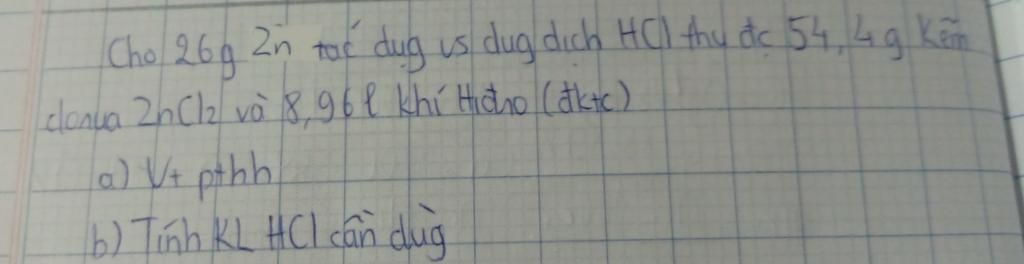 Cho 26g Zn tác dụg vs dug dịch HCl thu đc 54,4g Kẽm
clorua ZnCl2 và 8,96l khí Hiđro (đktc)
a) Vt pthh
b) Tính KL HCl cần dùg